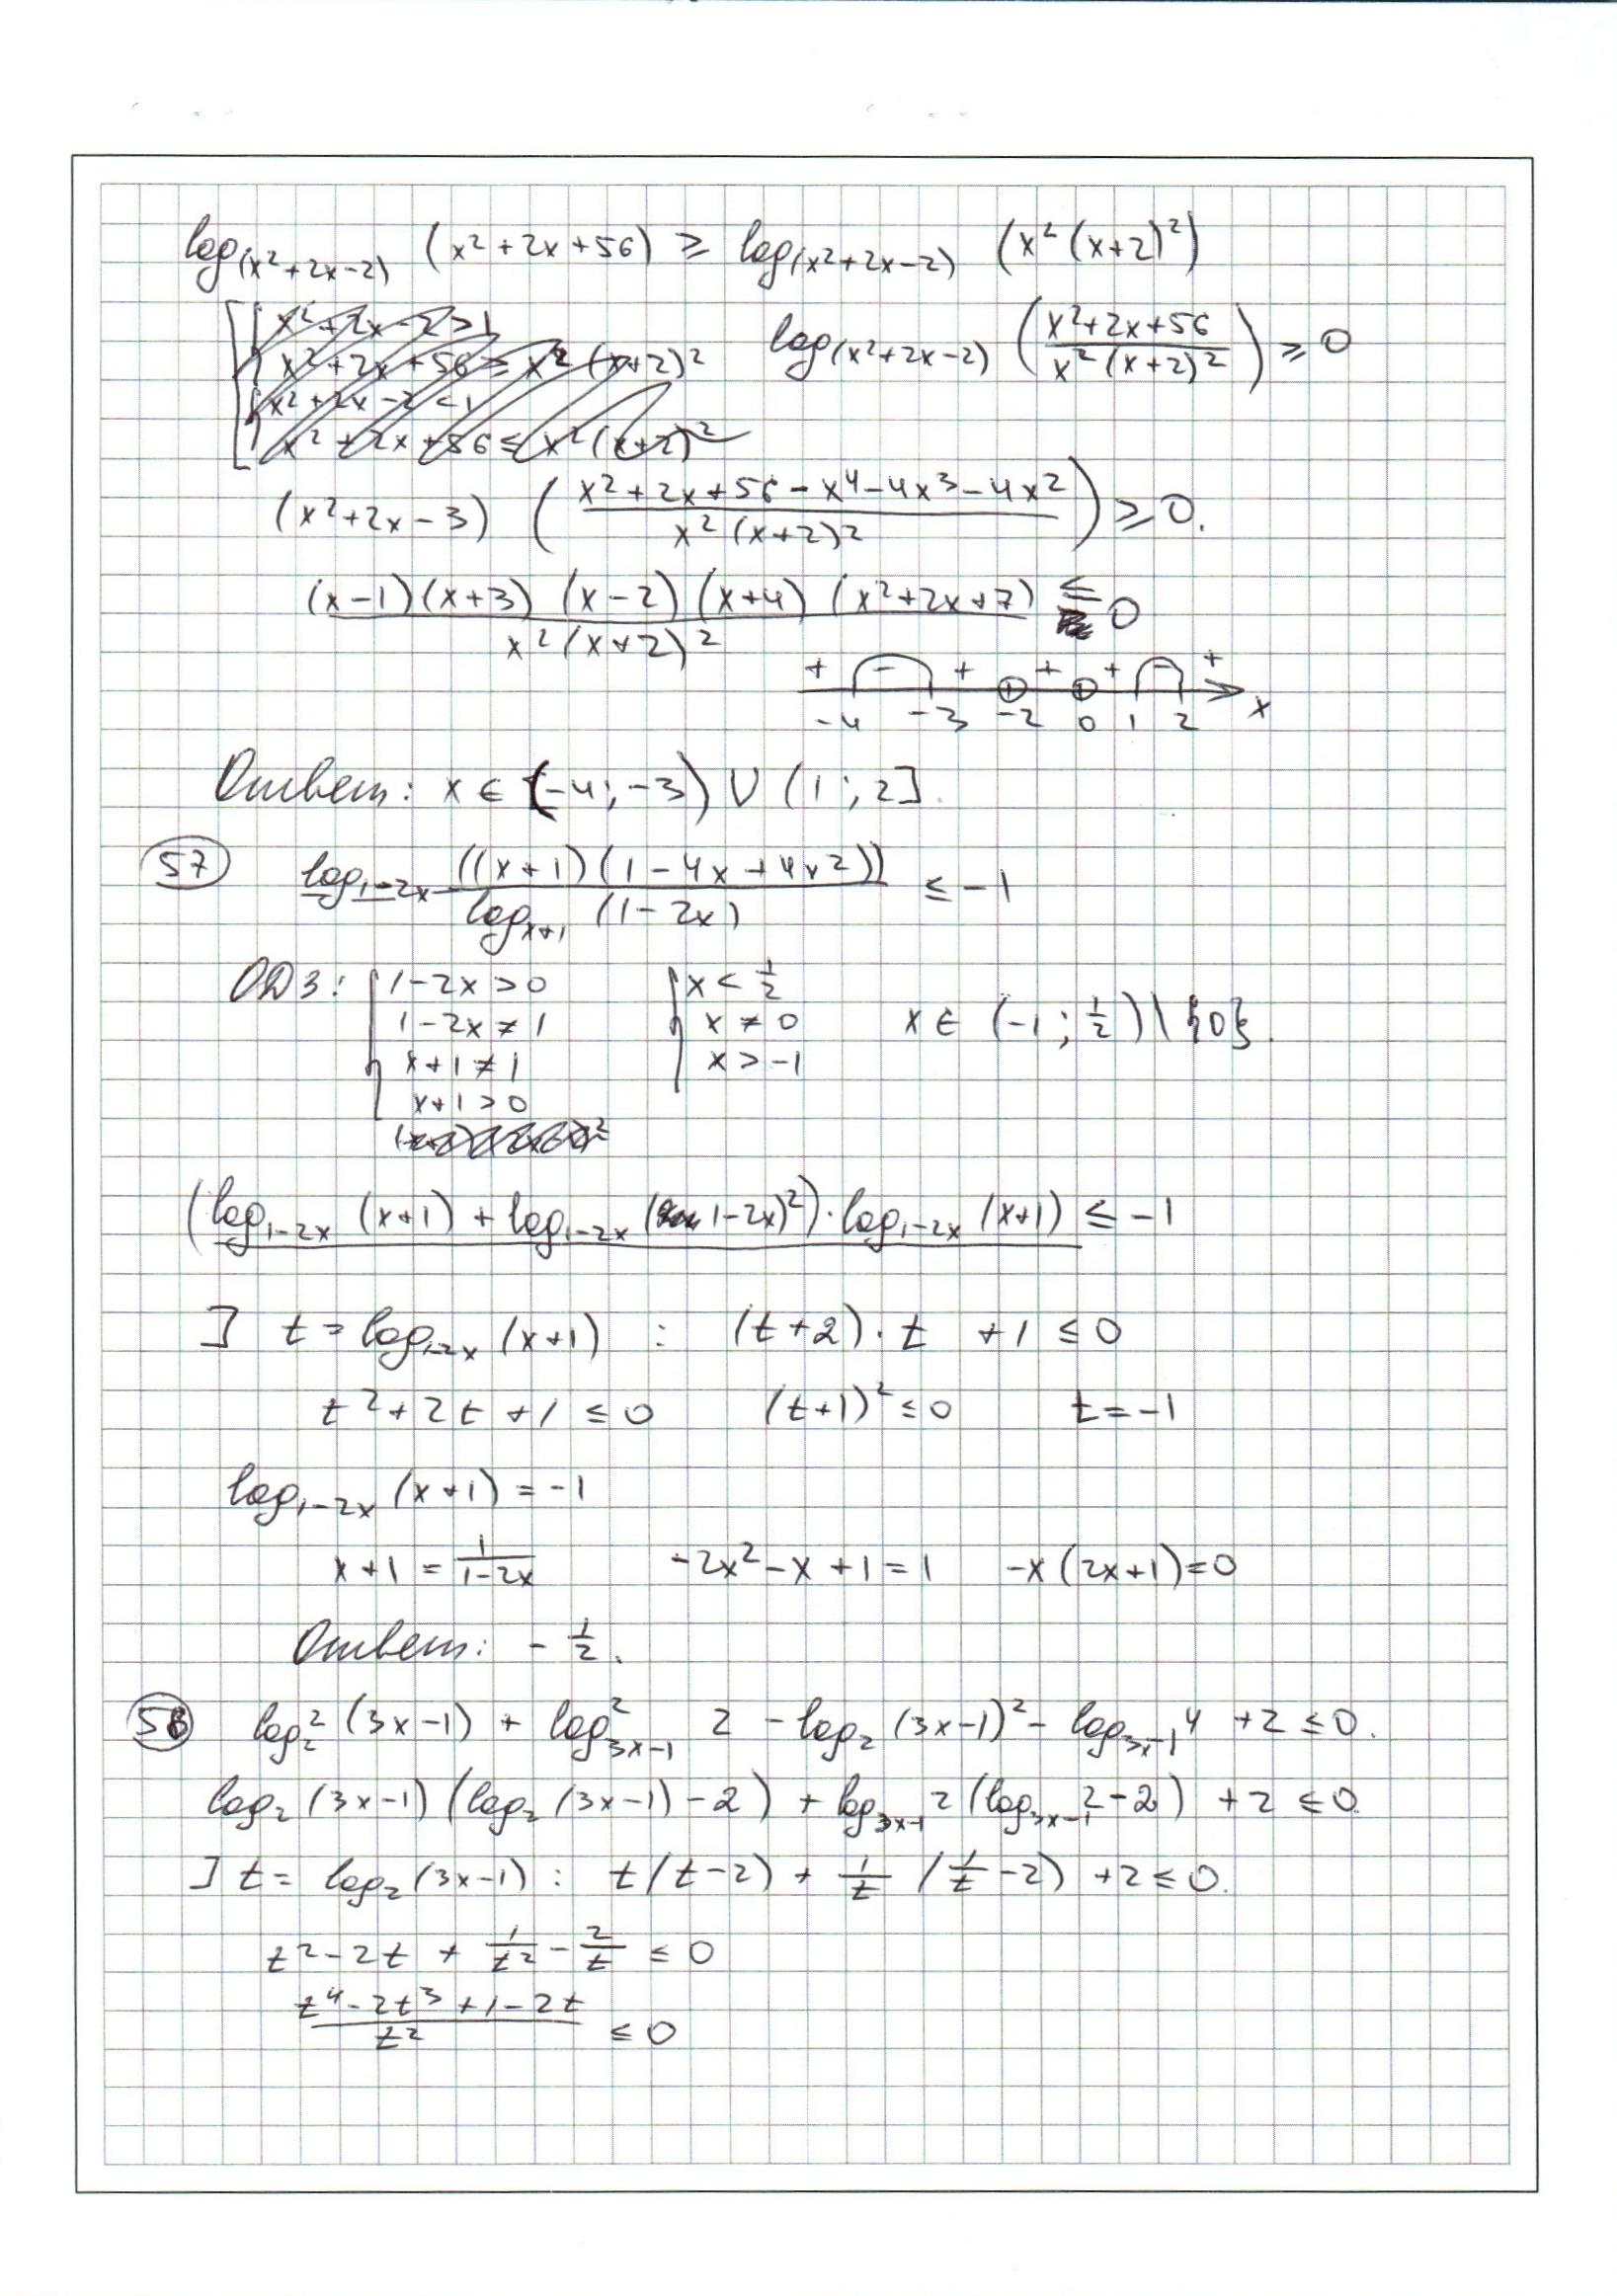 log_(x²+2x-2) (x²+2x+56) ≥ log_(x²+2x-2) (x²(x+2)²)
x²+2x-2>1
x²+2x+56 ≥ x²(x+2)² log_(x²+2x-2) ((x²+2x+56)/(x²(x+2)²)) ≥ 0
x²+2x-2<1
x²+2x+56 ≤ x²(x+2)²
(x²+2x-3) ((x²+2x+56-x⁴-4x³-4x²)/(x²(x+2)²)) ≥ 0.
((x-1)(x+3)(x-2)(x+4)(x²+2x+7))/(x²(x+2)²) ≤ 0
+ - + + + - +
-4 -3 -2 0 1 2 x
Ответ: x ∈ [-4; -3) ∪ (1; 2].
57 log_1-2x ((x+1)(1-4x+4x²))/log_x+1 (1-2x) ≤ -1
ОДЗ: 1-2x>0 x < 1/2
1-2x≠1 x ≠ 0 x ∈ (-1; 1/2) \ {0}.
x+1≠1 x > -1
x+1>0
(log_1-2x (x+1) + log_1-2x (1-2x)²) · log_1-2x (x+1) ≤ -1
] t = log_1-2x (x+1) : (t+2)·t +1 ≤ 0
t²+2t+1 ≤ 0 (t+1)² ≤ 0 t=-1
log_1-2x (x+1) = -1
x+1 = 1/(1-2x) -2x²-x+1=1 -x(2x+1)=0
Ответ: -1/2.
58 log₂² (3x-1) + log²_3x-1 2 - log₂ (3x-1)² - log_3x-1 4 +2 ≤ 0.
log₂ (3x-1) (log₂ (3x-1) - 2) + log_3x-1 2 (log_3x-1 2-2) +2 ≤ 0
] t = log₂ (3x-1) : t(t-2) + 1/t (1/t -2) +2 ≤ 0.
t²-2t + 1/t² - 2/t ≤ 0
(t⁴-2t³+1-2t)/t² ≤ 0